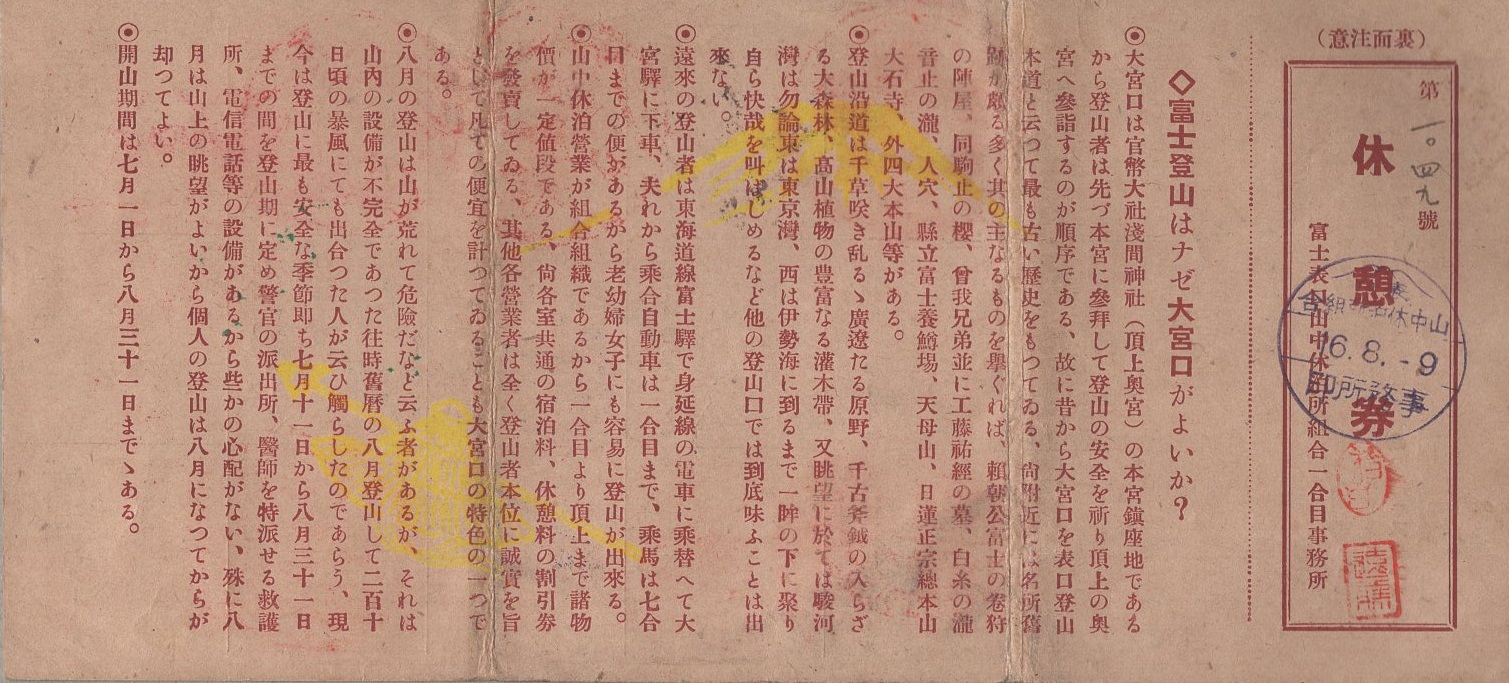 (裏面注意)
第一〇四九號
休憩券
富士表口山中休泊所組合一合目事務所
16.8.-9
事務所印
◇富士登山はナゼ大宮口がよいか?
◉大宮口は官幣大社淺間神社(頂上奥宮)の本宮鎭座地である
から登山者は先づ本宮に參拜して登山の安全を祈り頂上の奥
宮へ參詣するのが順序である、故に昔から大宮口を表口登山
本道と云つて最も古い歷史をもつてゐる、尙附近には名所舊
跡が頗る多く其の主なるものを擧ぐれば、賴朝公富士の卷狩
の陣屋、同駒止の櫻、曾我兄弟並に工藤祐經の墓、白糸の瀧
音止の瀧、人穴、縣立富士養鱒場、天母山、日蓮正宗總本山
大石寺、外四大本山等がある。
◉登山沿道は千草咲き乱るゝ廣遼たる原野、千古斧鉞の入らざ
る大森林、高山植物の豊富なる灌木帶、又眺望に於ては駿河
灣は勿論東は東京灣、西は伊勢海に到るまで一眸の下に聚り
自ら快哉を叫ばしめるなど他の登山口では到底味ふことは出
來ない。
◉遠來の登山者は東海道線富士驛で身延線の電車に乘替へて大
宮驛に下車、夫れから乘合自動車は一合目まで、乘馬は七合
目までの便があるから老幼婦女子にも容易に登山が出來る。
◉山中休泊營業が組合組織であるから一合目より頂上まで諸物
價が一定値段である、尙各室共通の宿泊料、休憩料の割引券
を發賣してゐる、其他各營業者は全く登山者本位に誠實を旨
として凡ての便宜を計つてゐることも大宮口の特色の一つで
ある。
◉八月の登山は山が荒れて危險だなど云ふ者があるが、それは
山內の設備が不完全であつた往時舊曆の八月登山して二百十
日頃の暴風にても出合つた人が云ひ觸らしたのであらう、現
今は登山に最も安全な季節即ち七月十一日から八月三十一日
までの間を登山期に定め警官の派出所、醫師を特派せる救護
所、電信電話等の設備があるから些かの心配がない、殊に八
月は山上の眺望がよいから個人の登山は八月になつてからが
却つてよい。
◉開山期間は七月一日から八月三十一日までゝある。